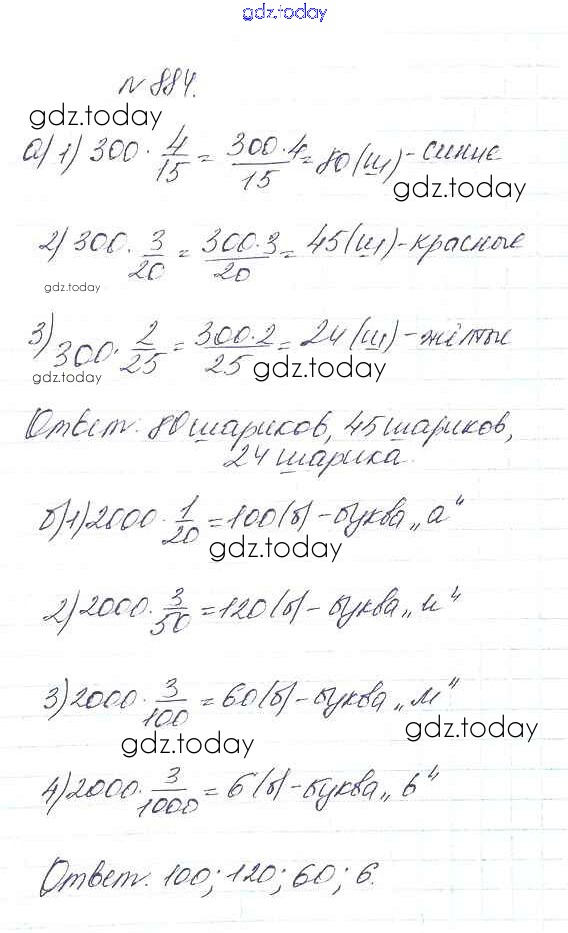 gdz.today
№ 884.
gdz.today
а) 1) 300 · 4/15 = 300·4/15 = 80 (ш) - синие
gdz.today
2) 300 · 3/20 = 300·3/20 = 45 (ш) - красные
gdz.today
3) 300 · 2/25 = 300·2/25 = 24 (ш) - жёлтые
gdz.today gdz.today
Ответ: 80 шариков, 45 шариков,
24 шарика.
б) 1) 2000 · 1/20 = 100 (б) - буква „а“
gdz.today
2) 2000 · 3/50 = 120 (б) - буква „и“
3) 2000 · 3/100 = 60 (б) - буква „м“
gdz.today gdz.today
4) 2000 · 3/1000 = 6 (б) - буква „ь“
Ответ: 100; 120; 60; 6.